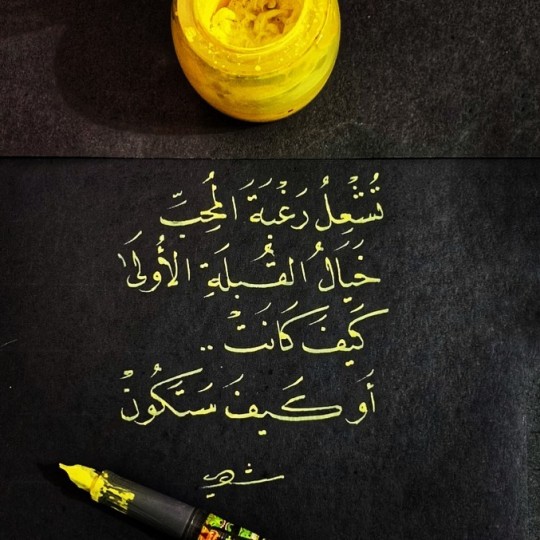 تُشْعِلُ رَغْبَةَ المُحِبِّ
خَيَالُ القُبلَةِ الأُولَىٰ
كَيْفَ كَانَتْ ..
أَو كَيفَ سَتَكُونْ